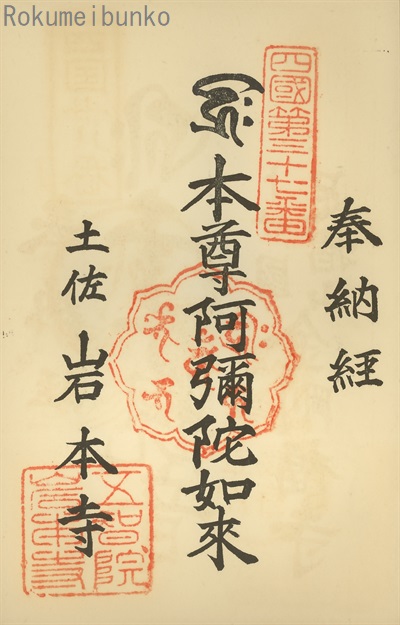 Rokumeibunko
四國第三十七番
奉納経
本尊阿彌陀如來
土佐 岩本寺
五智院
岩本寺